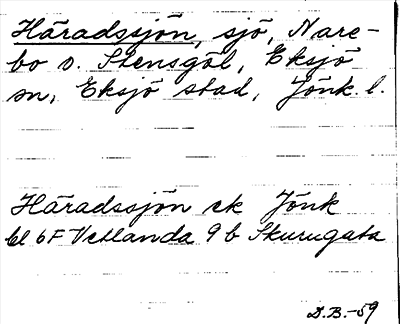 Häradssjön, sjö, Nare-
bo o. Stensgöl, Eksjö
sn, Eksjö stad, Jönk. l.
Häradssjön ek Jönk
bl 6F Vetlanda 9b Skurugata
D.B.-59